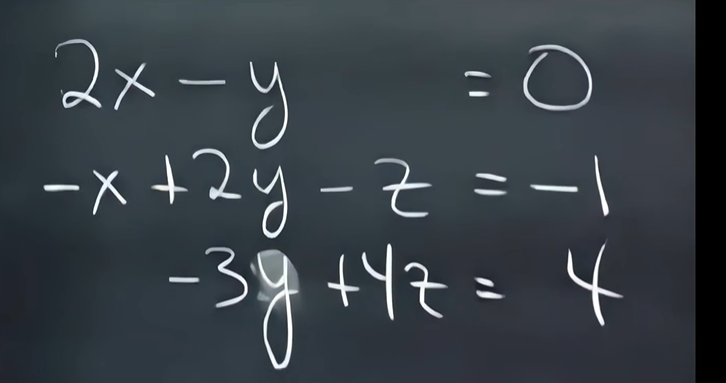 2x - y = 0
-x + 2y - z = -1
-3y + 4z = 4